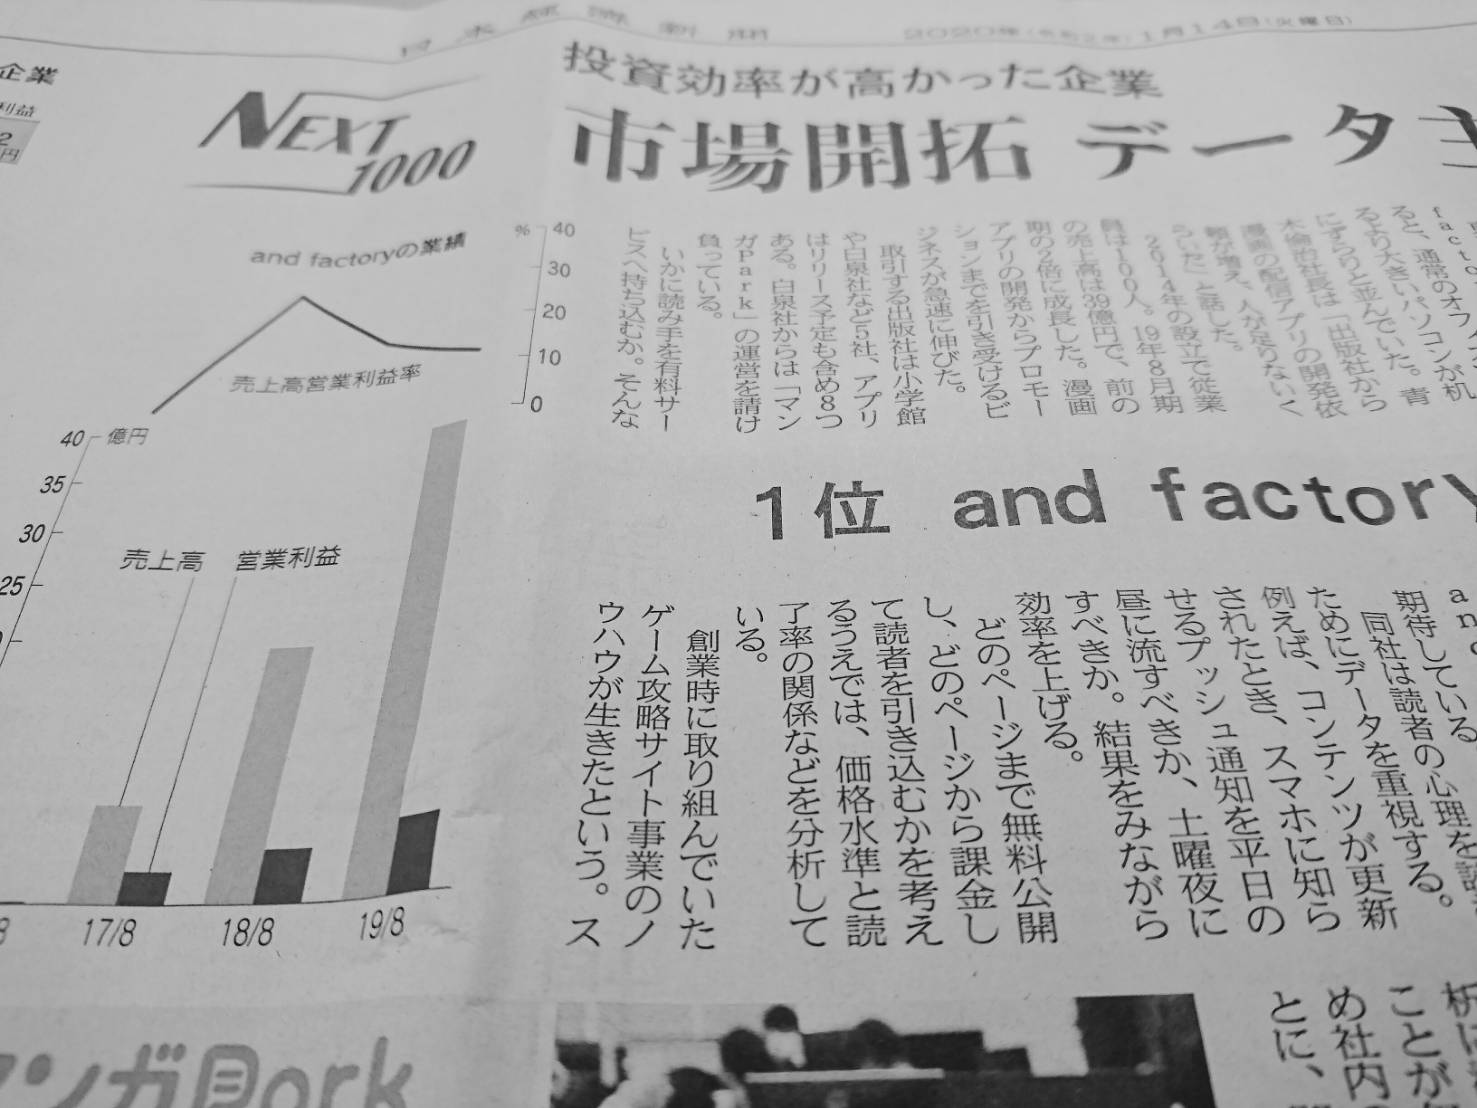 日本経済新聞
2020年(令和2年)1月14日(火曜日)
投資効率が高かった企業
市場開拓 データ
企業
利益
2
円
NEXT
1000
and factoryの業績
%
40
30
20
10
0
売上高営業利益率
40 億円
35
30
25
売上高
営業利益
17/8
18/8
19/8
ると、通常のオフィス
るより大きいパソコンが机
にずらりと並んでいた。青
木倫治社長は「出版社から
漫画の配信アプリの開発依
頼が増え、人が足りないく
らいだ」と話した。
2014年の設立で従業
員は100人。19年8月期
の売上高は39億円で、前の
期の2倍に成長した。漫画
アプリの開発からプロモー
ションまでを引き受けるビ
ジネスが急速に伸びた。
取引する出版社は小学館
や白泉社など5社、アプリ
はリリース予定も含め8つ
ある。白泉社からは「マン
ガPark」の運営を請け
負っている。
いかに読み手を有料サー
ビスへ持ち込むか。そんな
1位 and factory
期待している
同社は読者の心理を
ためにデータを重視する。
例えば、コンテンツが更新
されたとき、スマホに知ら
せるプッシュ通知を平日の
昼に流すべきか、土曜夜に
すべきか。結果をみながら
効率を上げる。
どのページまで無料公開
し、どのページから課金し
て読者を引き込むかを考え
るうえでは、価格水準と読
了率の関係などを分析して
いる。
創業時に取り組んでいた
ゲーム攻略サイト事業のノ
ウハウが生きたという。ス
ことが
め社内
とに、
マンガPark